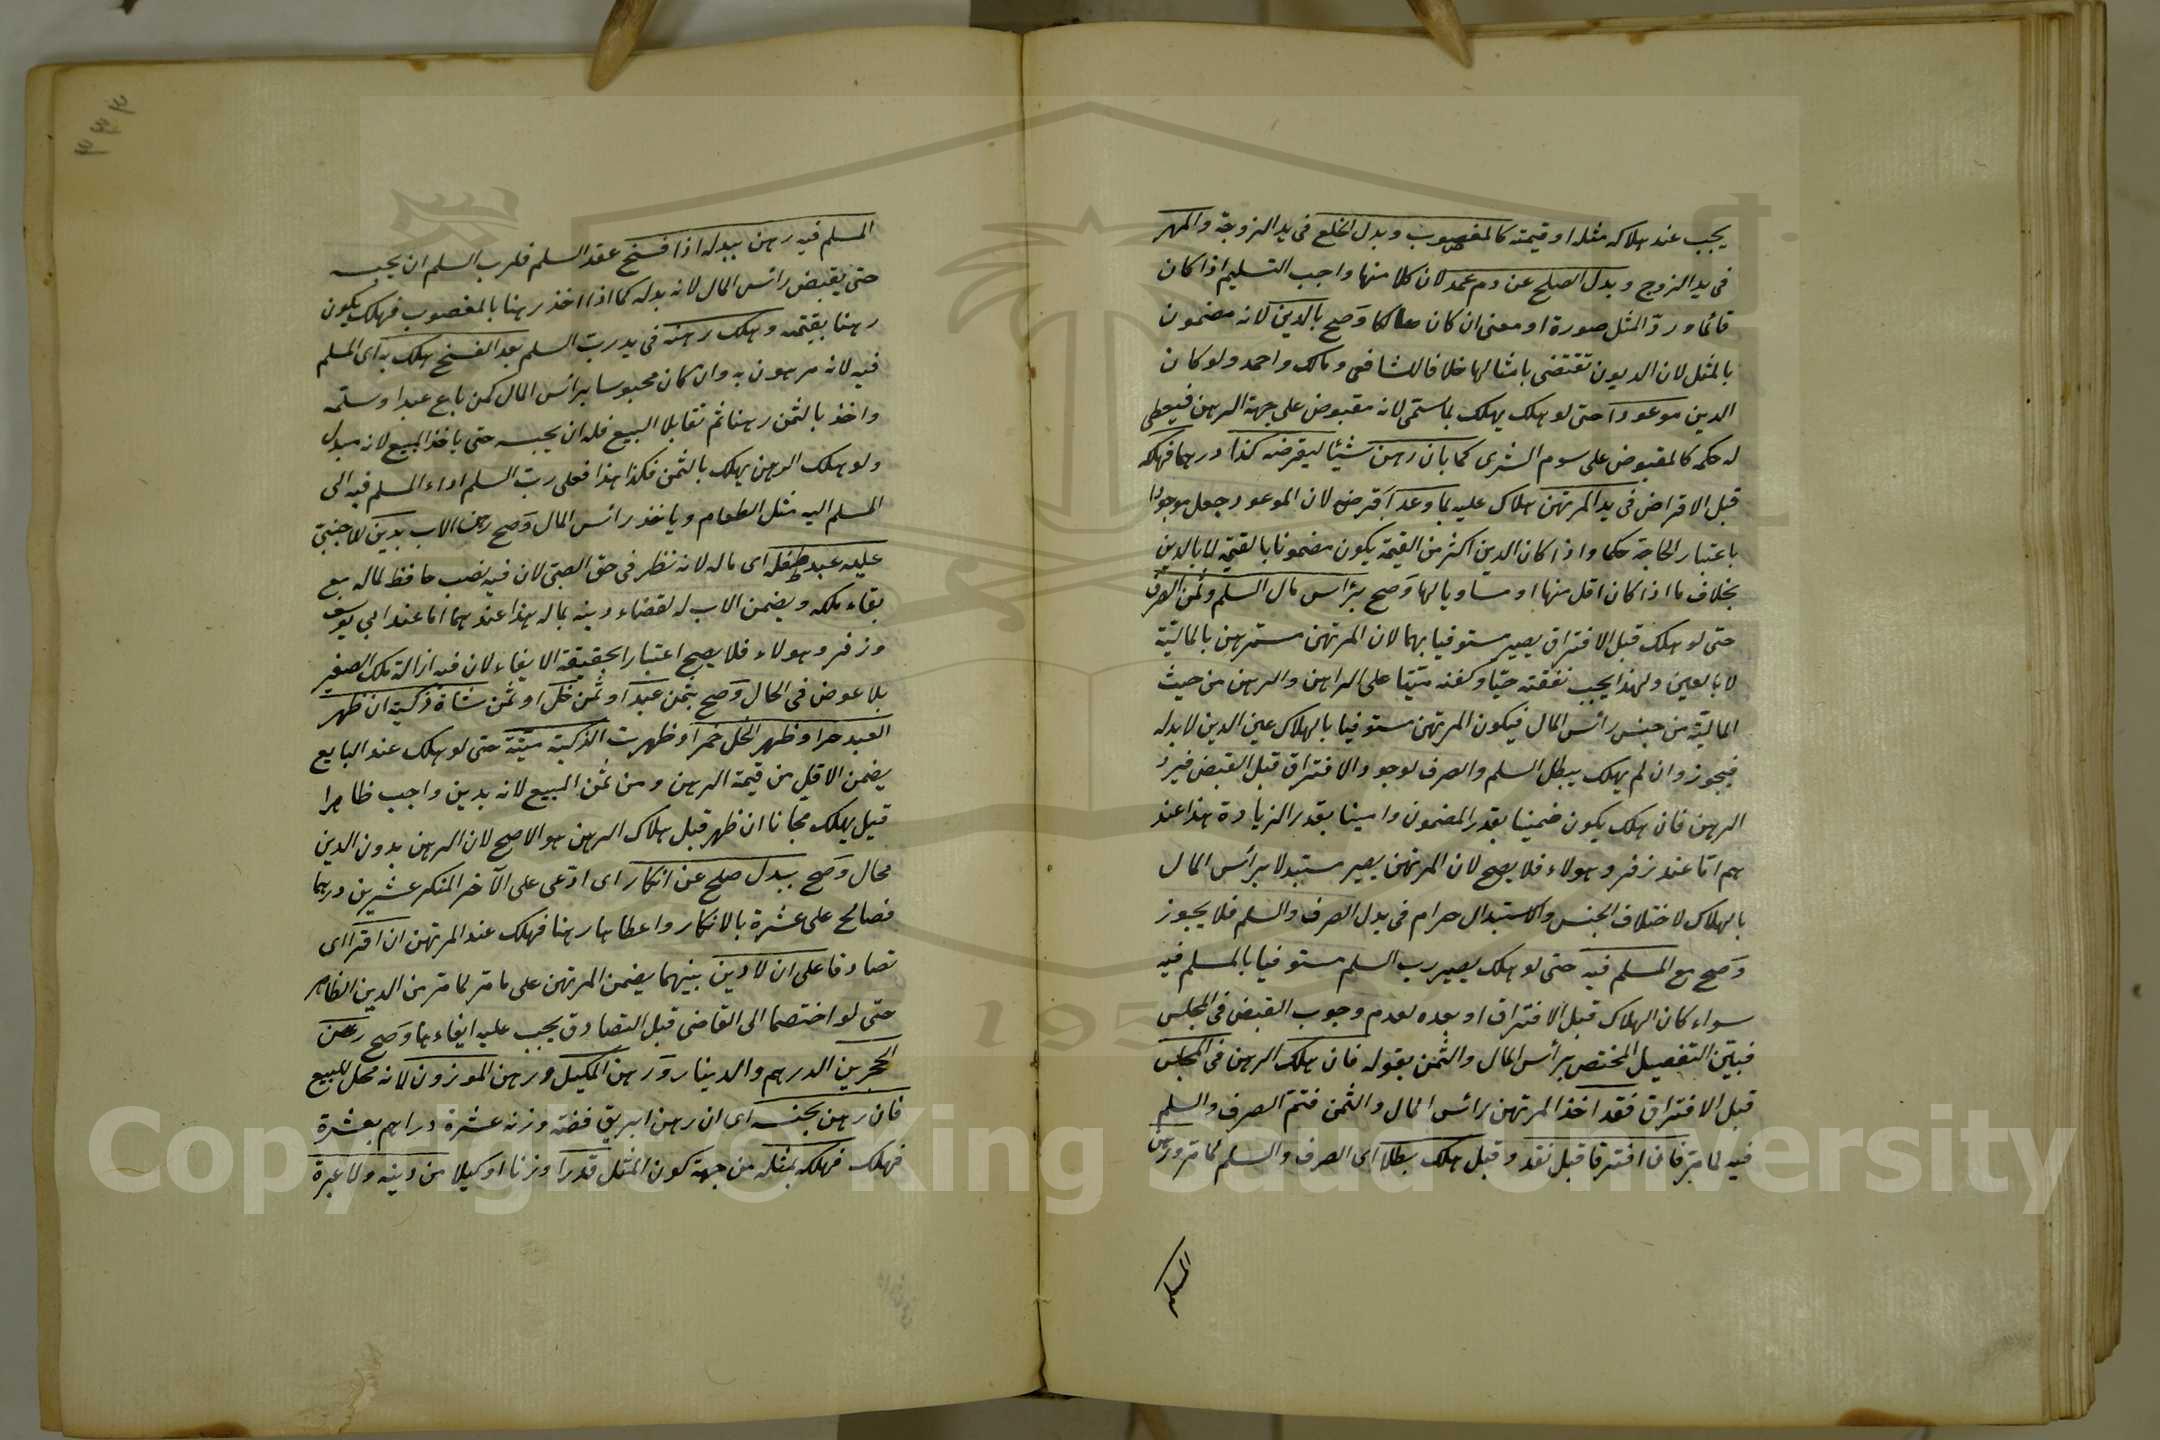 يجب عند هلاكه مثله او قيمته كالمغصوب وبدل الخلع فى يد الزوجة والمهر
فى يد الزوج وبدل الصلح عن دم عمد لان كلا منها واجب التسليم اذا كان
قائما وردّ المثل صورة او معنى ان كان هالكا وصح بالدين لانه مضمون
بالمثل لان الديون تقتضى بامثالها خلافا للشافعى ومالك واحمد ولو كان
الدين موعودا حتى لو هلك يهلك بما سمّى لانه مقبوض على جهة الرهن فيعطى
له حكمه كالمقبوض على سوم الشرى كما بان رهن شيئا ليقرضه كذا درهما فهلكه
قبل الاقراض فى يد المرتهن هلاك عليه بما وعد اقرضه لان الموعود جعل موجودا
باعتبار الحاجة حكما واذا كان الدين اكثر من القيمة يكون مضمونا بالقيمة لا بالدين
بخلاف ما اذا كان اقل منها او مساويا لها وصح برأس مال السلم وثمن الصرف
حتى لو هلك قبل الافتراق يصير مستوفيا بهما لان المرتهن مسترهن بالماليّة
لا بالعين ولهذا يجب نفقته حيّا وكفنه ميّتا على الراهن والرهن من حيث
الماليّة من جنس رائس المال فيكون المرتهن مستوفيا بالهلاك عين الدين لا بدله
فيجوز وان لم يهلك يبطل السلم والصرف لوجود الافتراق قبل القبض فيرد
الرهن فان هلك يكون ضمينا بقدر المضمون وامينا بقدر الزيادة هذا عند
هم امّا عند زفر وهولاء فلا يصح لان المرتهن يصير مستبدلا برأس المال
بالهلاك لاختلاف الجنس والاستبدال حرام فى بدل الصرف والسلم فلا يجوز
وصح مع المسلم فيه حتى لو هلك يصير رب السلم مستوفيا بالمسلم فيه
سواء كان الهلاك قبل الافتراق او بعده لعدم وجوب القبض فى المجلس
فبيّن التفصيل المختص برأس المال والثمن بقوله فان هلك الرهن فى المجلس
قبل الافتراق فقد اخذ المرتهن رائس المال والثمن فتمّ الصرف والسلم
فيه لما مرّ فان افترقا قبل نقد وقبل هلك بطلا اى الصرف والسلم لما مرّ ورهن
المسلم
٣٣٣
المسلم فيه رهن ببدله اذا فسخ عقد السلم فلرب السلم ان يحبسه
حتى يقبض رائس المال لانه بدله كما اذا اخذ رهنا بالمغصوب فهلك يكون
رهنا بقيمته وهلك رهنه فى يد رب السلم بعد الفسخ هلك به اى المسلم
فيه لانه مرهون به وان كان محبوسا برائس المال كمن باع عبدا وسلّمه
واخذ بالثمن رهنا ثم تقايلا البيع فله ان يحبسه حتى ياخذ المبيع لانه مبدل
ولو هلك الرهن يهلك بالثمن فكذا هذا فعلى رب السلم اداء المسلم فيه الى
المسلم اليه مثل الطعام وياخذ رائس المال وصح رهن الاب بدين للاجنبى
عليه عبد طفله اى ماله لانه نظر فى حق الصبى لان فيه نصب حافظ لماله مع
بقاء ملكه ويضمن الاب له لقضاء دينه بماله هذا عندهما اما عند ابي يوسف
وزفر وهولاء فلا يصح اعتبارا بحقيقة الايفاء لان فيه ازالة ملك الصغير
بلا عوض فى الحال وصح بثمن عبد او ثمن خلّ او ثمن شاة ذكية ان ظهر
العبد حرا وظهر الخل خمرا وظهرت الذكية ميّتة حتى لو هلك عند البايع
يضمن الاقل من قيمة الرهن ومن ثمن المبيع لانه بدين واجب ظاهرا
قيل يهلك مجانا ان ظهر قبل هلاك الرهن هو الاصح لان الرهن بدون الدين
محال وصح ببدل صلح عن انكار اى ادّعى على الآخر المنكر عشرين درهما
فصالح على عشرة بالانكار واعطاها رهنا فهلك عند المرتهن ان اقرّا اى
تصادقا على ان لا دين بينهما يضمن المرتهن على ما مرّ لما مرّ من الدين الظاهر
حتى لو اختصما الى القاضى قبل التصادق يجب عليه ايفاءها وصح رهن
الحجرين الدرهم والدينار ورهن المكيل ورهن الموزون لانه محل للبيع
فان رهن بجنسه اى ان رهن ابريق فضة وزنه عشرة دراهم بعشرة
فهلك فهلكه بمثله من جهة كون المثل قدرا وزنا او كيلا من دينه ولا عبرة